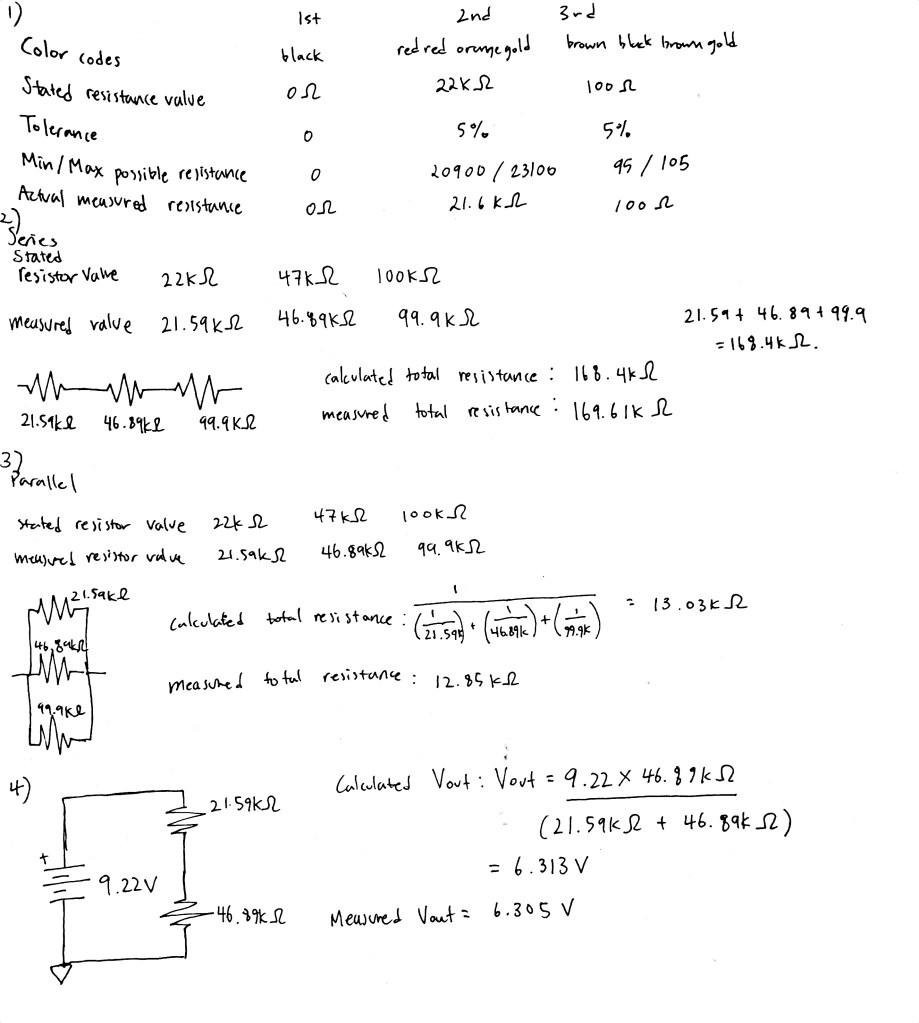 1)
1st 2nd 3rd
Color codes black red red orange gold brown black brown gold
Stated resistance value 0Ω 22KΩ 100Ω
Tolerance 0 5% 5%
Min/Max possible resistance 0 20900 / 23100 95 / 105
Actual measured resistance 0Ω 21.6KΩ 100Ω
2)
Series
Stated
resistor value 22KΩ 47KΩ 100KΩ
measured value 21.59KΩ 46.89KΩ 99.9KΩ
21.59 + 46.89 + 99.9
= 168.4KΩ.
calculated total resistance : 168.4KΩ
21.59kΩ 46.89kΩ 99.9KΩ
measured total resistance : 169.61KΩ
3)
Parallel
stated resistor value 22kΩ 47KΩ 100KΩ
measured resistor value 21.59KΩ 46.89KΩ 99.9KΩ
21.59kΩ
46.89kΩ
99.9KΩ
calculated total resistance : 1 / ((1/21.59k) + (1/46.89k) + (1/99.9k)) = 13.03KΩ
measured total resistance : 12.85KΩ
4)
21.59KΩ
+
9.22V
46.89KΩ
Calculated Vout : Vout = 9.22 X 46.89KΩ
(21.59KΩ + 46.89KΩ)
= 6.313 V
Measured Vout = 6.305 V